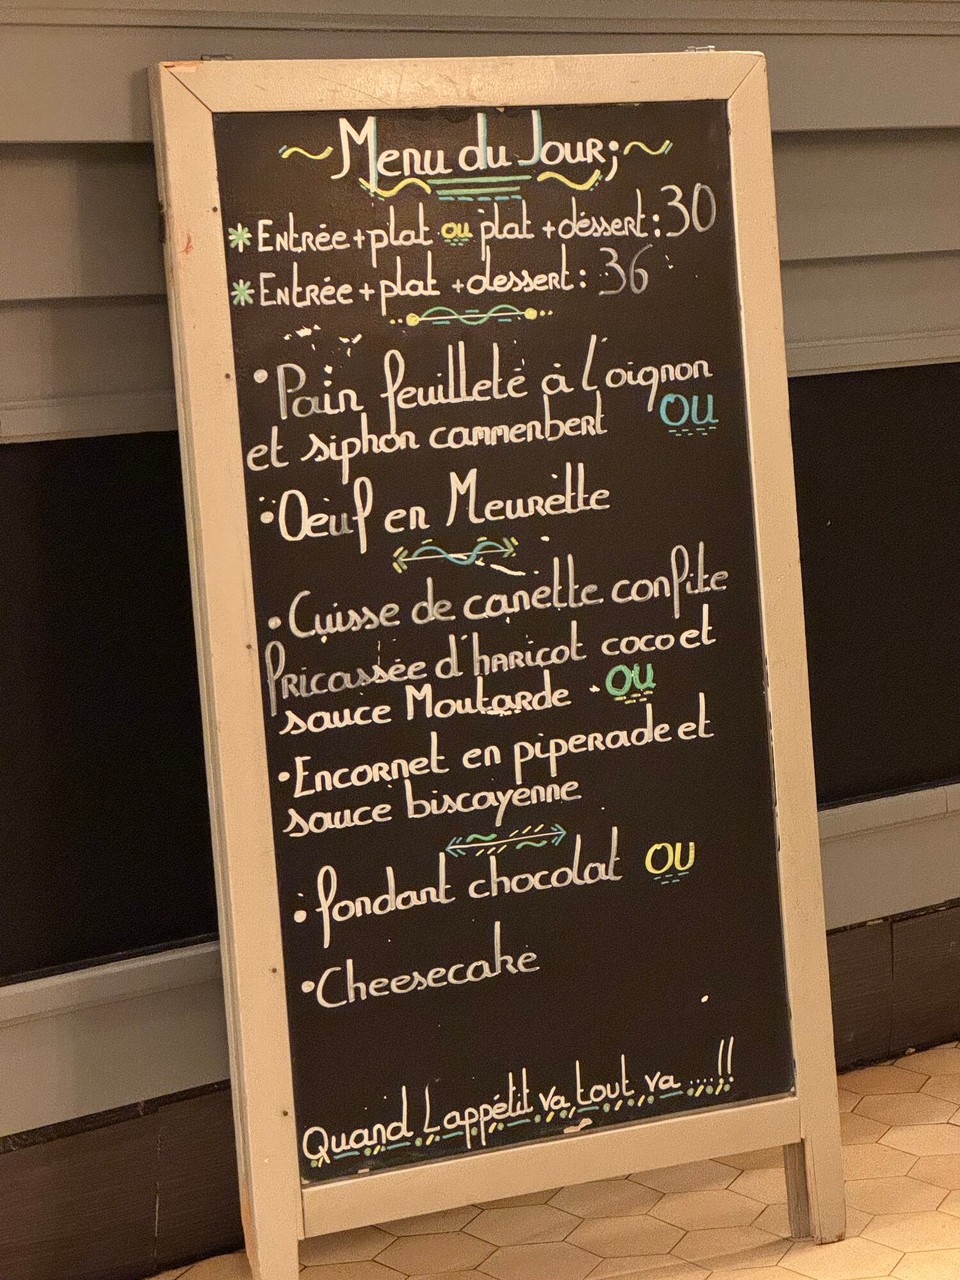 Menu du Jour;
* Entrée + plat ou plat + déssert : 30
* Entrée + plat + dessert : 36
• Pain feuilleté à l'oignon
et siphon cammenbert OU
• Oeuf en Meurette
• Cuisse de canette confite
fricassée d'haricot coco et
sauce Moutarde . OU
• Encornet en piperade et
sauce biscayenne
• fondant chocolat OU
• Cheesecake
Quand L'appétit va tout va ....!!